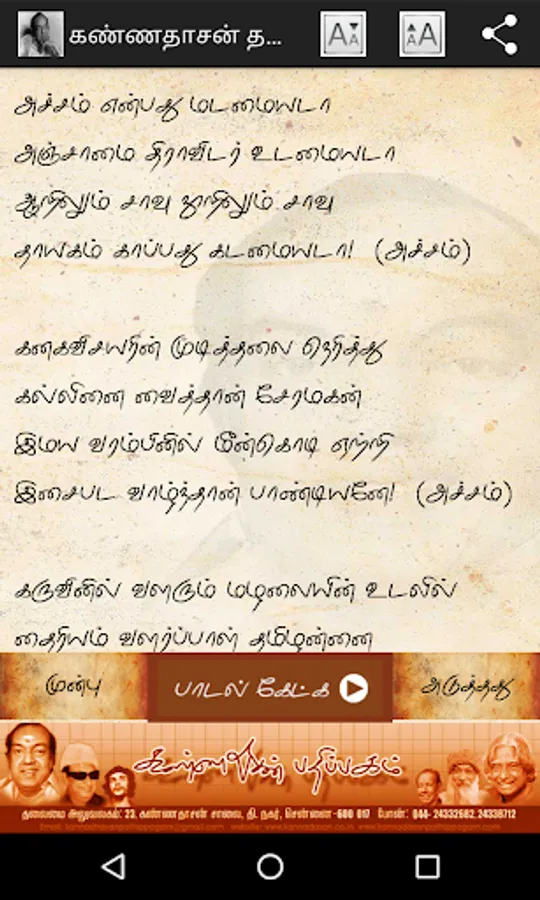 கண்ணதாசன் த...
அச்சம் என்பது மடமையடா
அஞ்சாமை திராவிடர் உடமையடா
ஆறிலும் சாவு நூறிலும் சாவு
தாயகம் காப்பது கடமையடா! (அச்சம்)
கனகவிசயரின் முடித்தலை நெரித்து
கல்லினை வைத்தான் சேரமகன்
இமய வரம்பினில் மீன்கொடி ஏற்றி
இசைபட வாழ்ந்தான் பாண்டியனே! (அச்சம்)
கருவினில் வளரும் மழலையின் உடலில்
தைரியம் வளர்ப்பாள் தமிழன்னை
முன்பு
பாடல் கேட்க
அடுத்தது
கண்ணதாசன் பதிப்பகம்
தலைமை அலுவலகம்: 23, கண்ணதாசன் சாலை, தி. நகர், சென்னை-600 017 போன்: 044- 24332682, 24338712